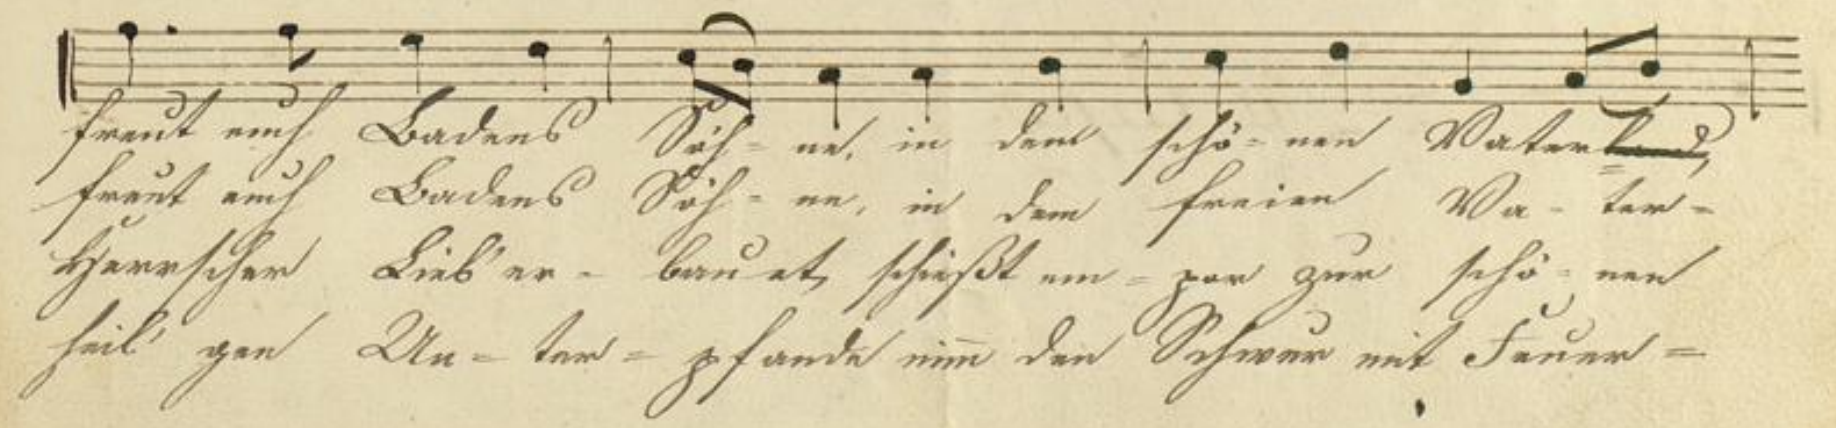 freut euch Badens Söh - ne, in dem schö - nen Vaterland,
freut euch Badens Söh - ne, in dem freien Va - ter -
Herrscher Lieb' er - bauet, schießt em - por zur schö - nen
heil' gen Un - ter - pfande nim̅ den Schwur mit Feuer =